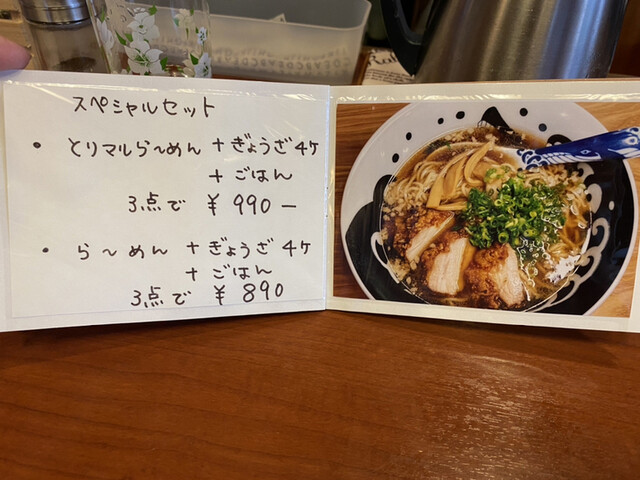 スペシャルセット
・とりマルら〜めん + ぎょうざ4ケ
+ ごはん
3点で ¥990−
・ら〜めん + ぎょうざ4ケ
+ ごはん
3点で ¥890